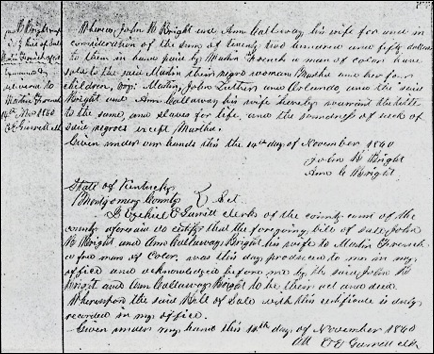 Jno W Wright & wife
Bill of Sale
Martin French
Whereas John W Wright and Ann Callaway his wife for and in
consideration of the sum of twenty two hundred and fifty dollars
to them in hand paid by Martin French a man of color have
sold to the said Martin their negro woman Martha and her four
children, viz: Martin, John Luther and Orlando, and the said
Wright and Ann Callaway his wife hereby warrant the title
to the same, and slaves for life, and the soundness of each of
said negroes except Martha.
Given under our hands this the 14th day of November 1860
John W Wright
Ann C Wright
Martin French
14th Nov 1860
State of Kentucky
Montgomery County Sct
I Ezekiel E Garrett clerk of the county court of the
county aforesaid do certify that the foregoing bill of sale John
W Wright and Ann Callaway Wright his wife to Martin French
a free man of Color, was this day produced to me in my
office and acknowledged before me by the said John W
Wright and Ann Callaway Wright to be their act and deed.
Whereupon the said Bill of Sale with this certificate is duly
recorded in my office.
Given under my hand this 14th day of November 1860
Att E E Garrett clk